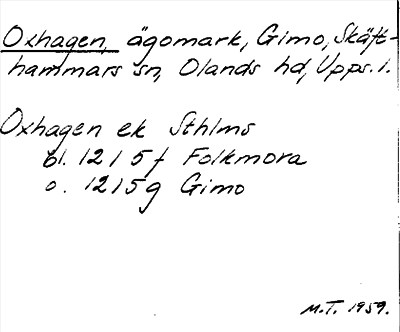 Oxhagen, ägomark, Gimo, Skäft-
hammars sn, Olands hd, Upps. l.
Oxhagen ek Sthlms
bl. 1215f Folkmora
o. 1215g Gimo
M.T. 1959.